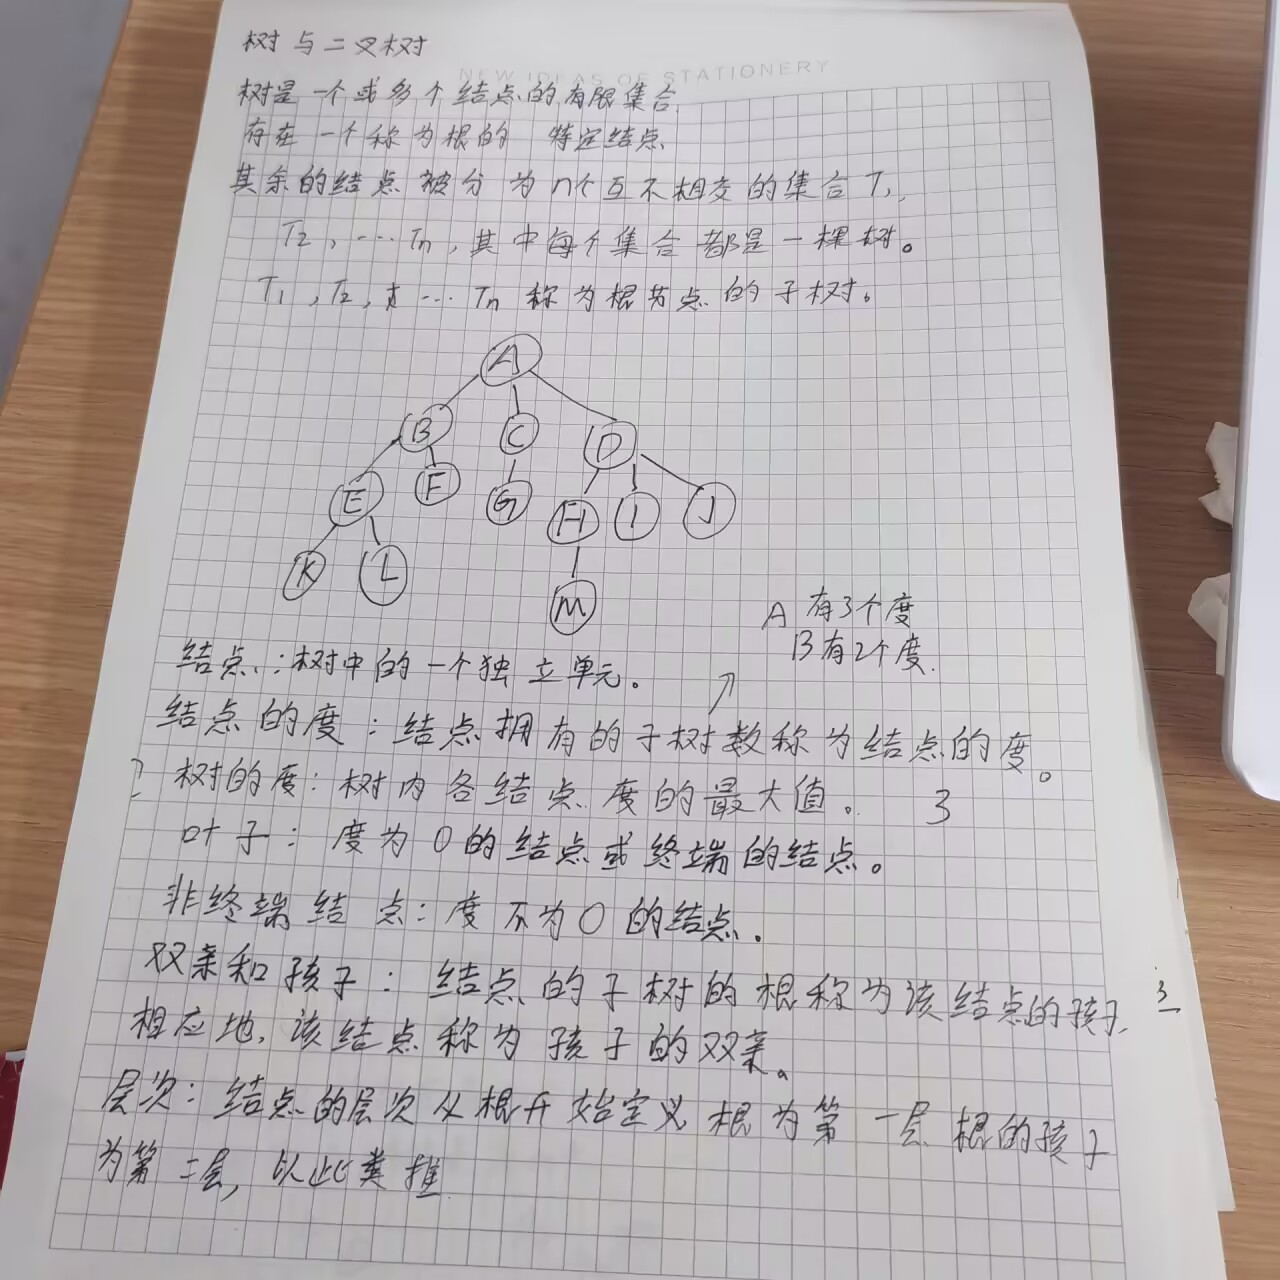 树与二叉树
NEW IDEAS OF STATIONERY
树是一个或多个结点的有限集合.
存在一个称为根的 特定结点
其余的结点被分为n个互不相交的集合T1,
T2,…Tn,其中每个集合都是一棵树。
T1,T2,…Tn称为根节点的子树。
A
B C D
E F G H I J
K L M
A有3个度
B有2个度.
结点:树中的一个独立单元。
结点的度:结点拥有的子树数称为结点的度。
树的度:树内各结点度的最大值。 3
叶子:度为0的结点或终端的结点。
非终端结点:度不为0的结点.
双亲和孩子:结点的子树的根称为该结点的孩子.
相应地,该结点称为孩子的双亲。
层次:结点的层次从根开始定义 根为第一层 根的孩子
为第二层,以此类推